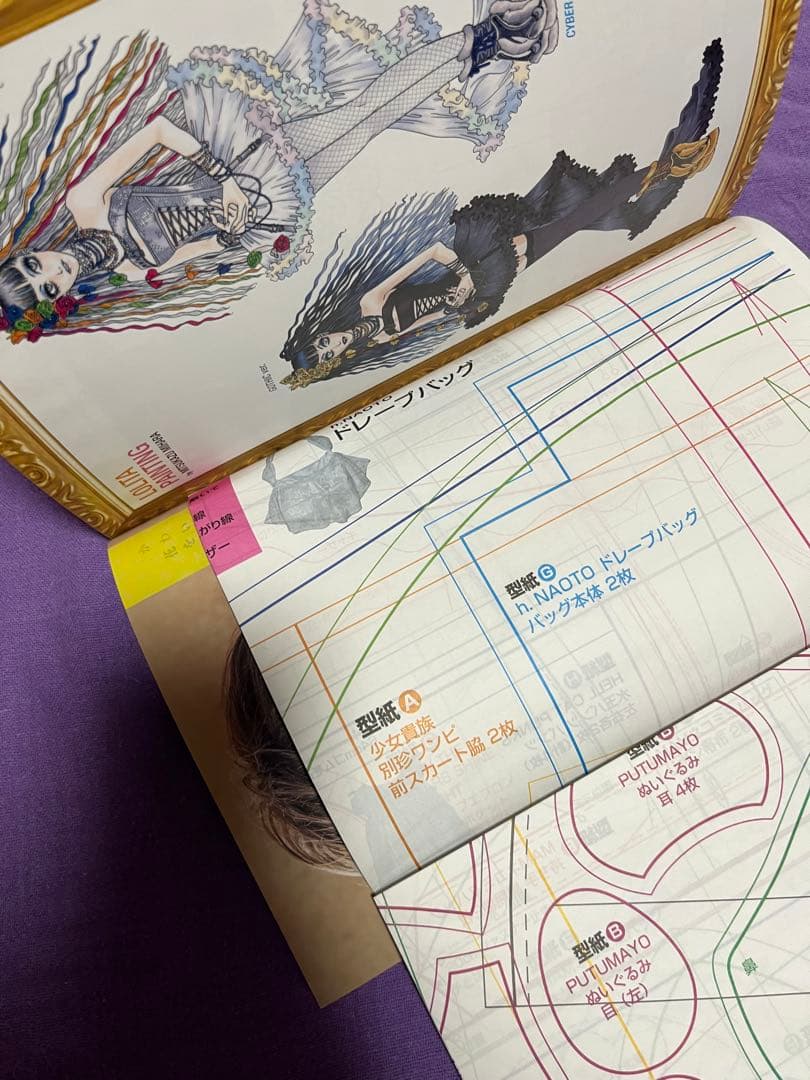 CYBER
GOTHIC VER.
LOLITA
PAINTING
by MITSUKAZU MIHARA
h.NAOTO
ドレープバッグ
線
がり線
ザー
型紙 G
h. NAOTO ドレープバッグ
バッグ本体 2枚
型紙 A
少女貴族
別珍ワンピ
前スカート脇 2枚
型紙 B
PUTUMAYO
ぬいぐるみ
耳 4枚
型紙 B
PUTUMAYO
ぬいぐるみ
目（左）
鼻